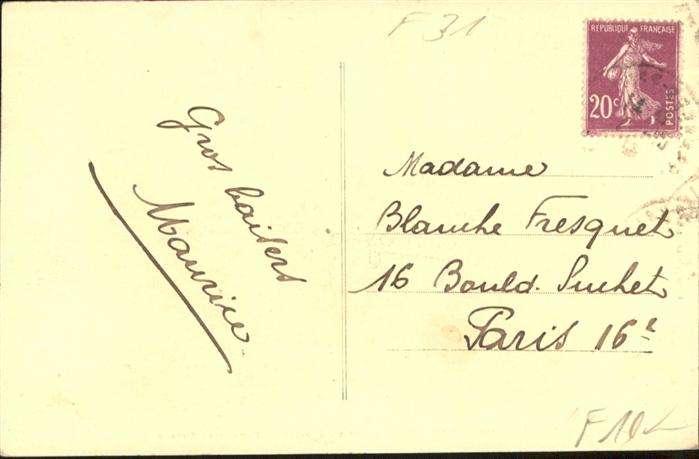 F31
REPUBLIQUE FRANÇAISE
20c
POSTES
Gros baisers
Maurice
Madame
Blanche Fresquet
16 Bould. Suchet
Paris 16e